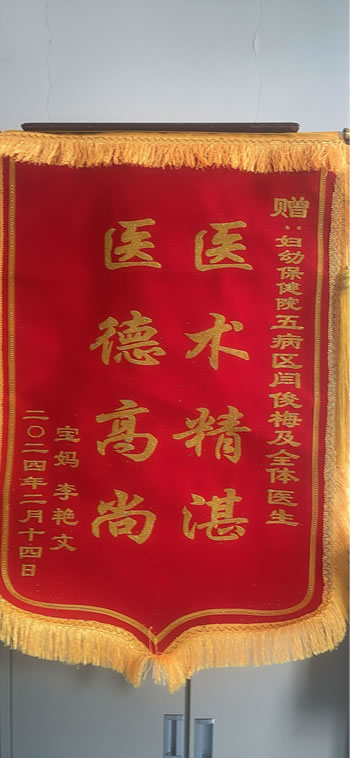 赠:妇幼保健院五病区闫俊梅及全体医生
医术精湛
医德高尚
宝妈李艳文
二〇二四年二月十四日